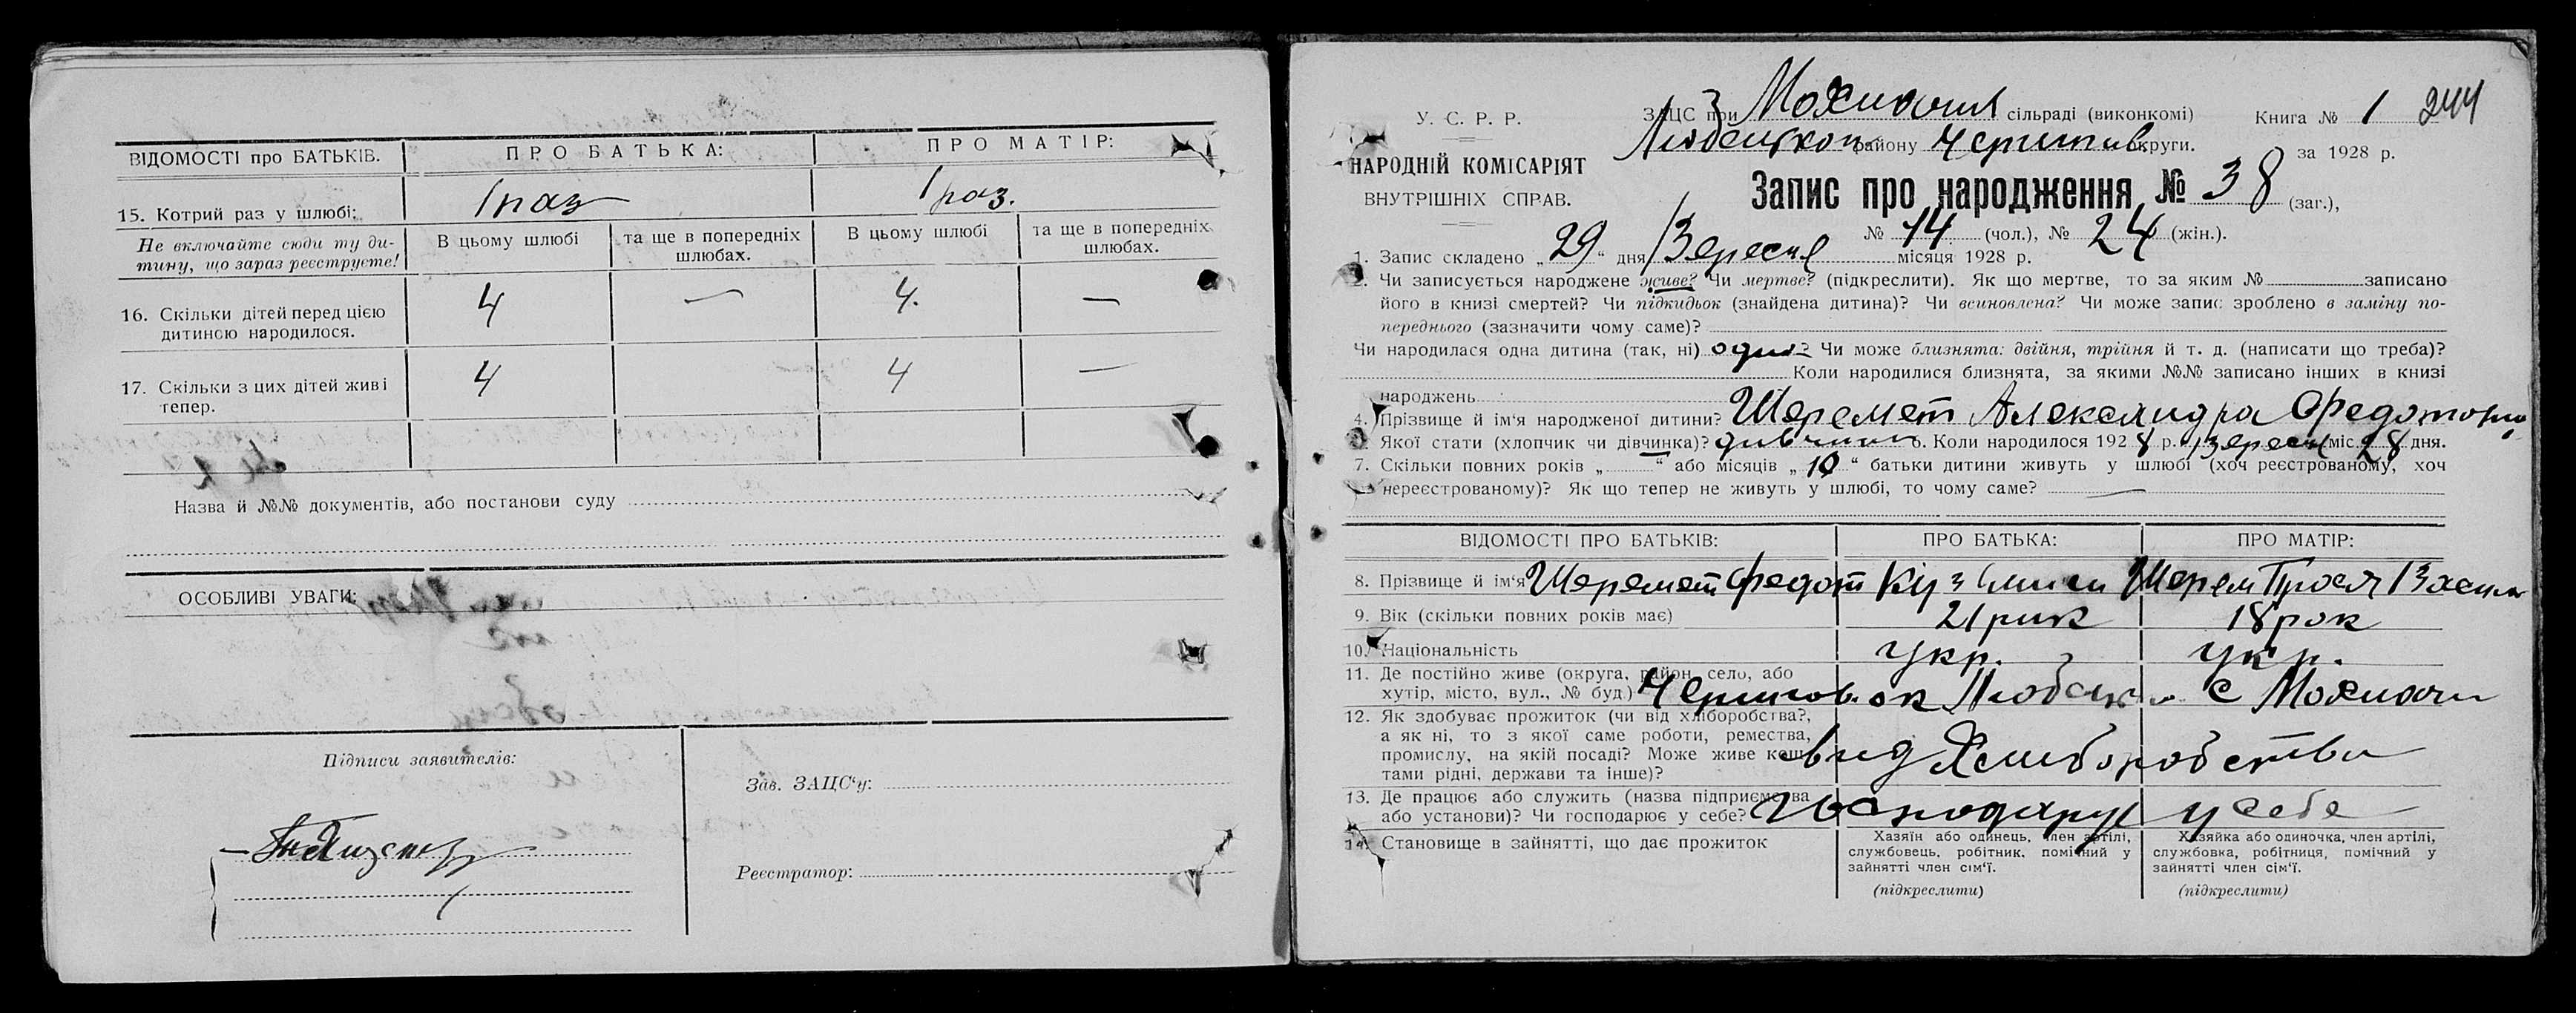 ВІДОМОСТІ про БАТЬКІВ. ПРО БАТЬКА: ПРО МАТІР:
15. Котрий раз у шлюбі: 1 раз 1 раз.
Не включайте сюди ту ди-
тину, що зараз реєструєте!
В цьому шлюбі
та ще в попередніх
шлюбах.
В цьому шлюбі
та ще в попередніх
шлюбах.
16. Скільки дітей перед цією
дитиною народилося.
4 — 4. —
17. Скільки з цих дітей живі
тепер.
4 4 —
Назва й №№ документів, або постанови суду
ОСОБЛИВІ УВАГИ:
Підписи заявителів:
Зав. ЗАЦС'у:
Реєстратор:
У. С. Р. Р.
НАРОДНІЙ КОМІСАРІЯТ
ВНУТРІШНІХ СПРАВ.
ЗАЦС при сільраді (виконкомі)
району Чернигив. округи.
Книга № 1 244
за 1928 р.
Запис про народження № 38 (заг.),
№ 14 (чол.), № 24 (жін.).
1. Запис складено „29“ дня Вересня місяця 1928 р.
2. Чи записується народжене живе? Чи мертве? (підкреслити). Як що мертве, то за яким № записано
його в книзі смертей? Чи підкидьок (знайдена дитина)? Чи всиновлена? Чи може запис зроблено в заміну по-
переднього (зазначити чому саме)?
Чи народилася одна дитина (так, ні) одна? Чи може близнята: двійня, трійня й т. д. (написати що треба)?
Коли народилися близнята, за якими №№ записано інших в книзі
народжень
4. Прізвище й ім'я народженої дитини? Шеремет Александра Федотовна
Якої стати (хлопчик чи дівчинка)? Коли народилося 1928 р. Вересня міс. 28 дня.
7. Скільки повних років „—“ або місяців „10“ батьки дитини живуть у шлюбі (хоч реєстрованому, хоч
нереєстрованому)? Як що тепер не живуть у шлюбі, то чому саме? —
ВІДОМОСТІ ПРО БАТЬКІВ: ПРО БАТЬКА: ПРО МАТІР:
8. Прізвище й ім'я Шеремет Федот Кузьмич Шерем
9. Вік (скільки повних років має) 21 рик 18 рок
10. Національність укр. укр.
11. Де постійно живе (округа, район, село, або
хутір, місто, вул., № буд.) Чернигов. ок с
12. Як здобуває прожиток (чи від хліборобства?,
а як ні, то з якої саме роботи, ремества,
промислу, на якій посаді? Може живе кош-
тами рідні, держави та інше)?
вид Хлиборобства
13. Де працює або служить (назва підприємства
або установи)? Чи господарює у себе?
Господарує у себе
14. Становище в зайнятті, що дає прожиток
Хазяїн або одинець, член артілі,
службовець, робітник, помічний у
зайнятті член сім'ї.
(підкреслити)
Хазяйка або одиночка, член артілі,
службовка, робітниця, помічний у
зайнятті член сім'ї.
(підкреслити)